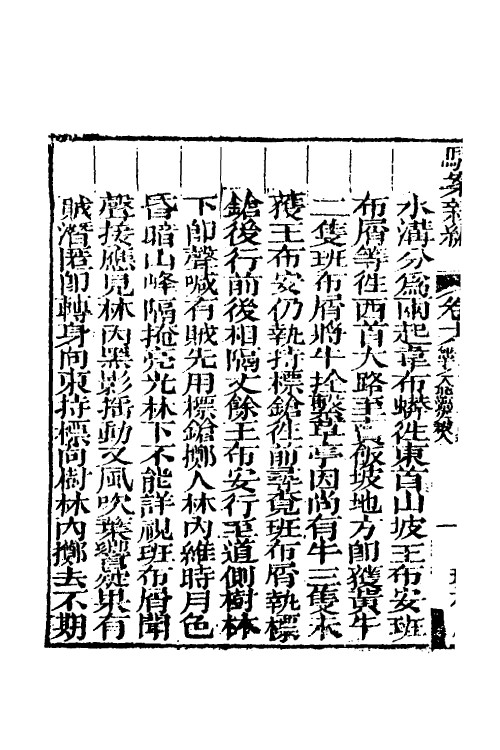 駁案新編
卷十
水溝分為兩起韋布蟒徃東首山坡王布安班
布屑等徃西首大路至良飯坡地方卽獲黃牛
二隻班布屑將牛拴繫草亭因尚有牛三隻未
獲王布安仍執持標鎗徃前尋覓班布屑執標
鎗後行前後相隔丈餘王布安行至道側樹林
下卽聲喊有賊先用標鎗擲入林內維時月色
昏暗山峰隔掩亮光林下不能詳視班布屑聞
聲接應見林內黑影揺動又風吹葉響疑果有
賊潛匿卽轉身向東持標向樹林內擲去不期